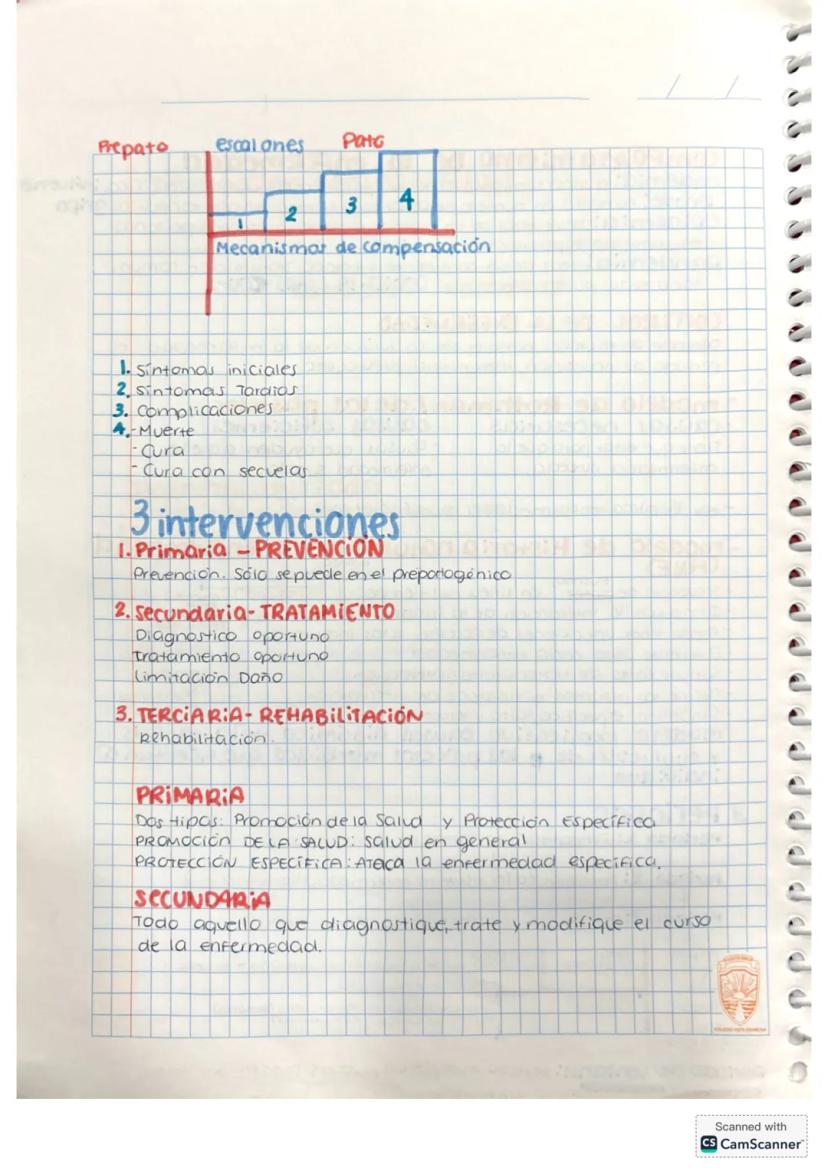 Prepato escalones Pato
1 2 3 4
Mecanismos de compensación
1. Síntomas iniciales
2. Síntomas Tardíos
3. Complicaciones
4.-Muerte
- Cura
- Cura con secuelas
3 intervenciones
1. Primaria - PREVENCIÓN
Prevención. Sólo se puede en el prepatogénico
2. Secundaria- TRATAMIENTO
Diagnostico oportuno
Tratamiento oportuno
Limitación Daño
3. TERCIARIA- REHABILITACIÓN
Rehabilitación.
PRIMARIA
Dos tipos: Promoción de la Salud y Protección Específica
PROMOCIÓN DE LA SALUD: Salud en general
PROTECCIÓN ESPECÍFICA: Ataca la enfermedad especifica.
SECUNDARIA
Todo aquello que diagnostique, trate y modifique el curso
de la enfermedad.
Scanned with
CS CamScanner